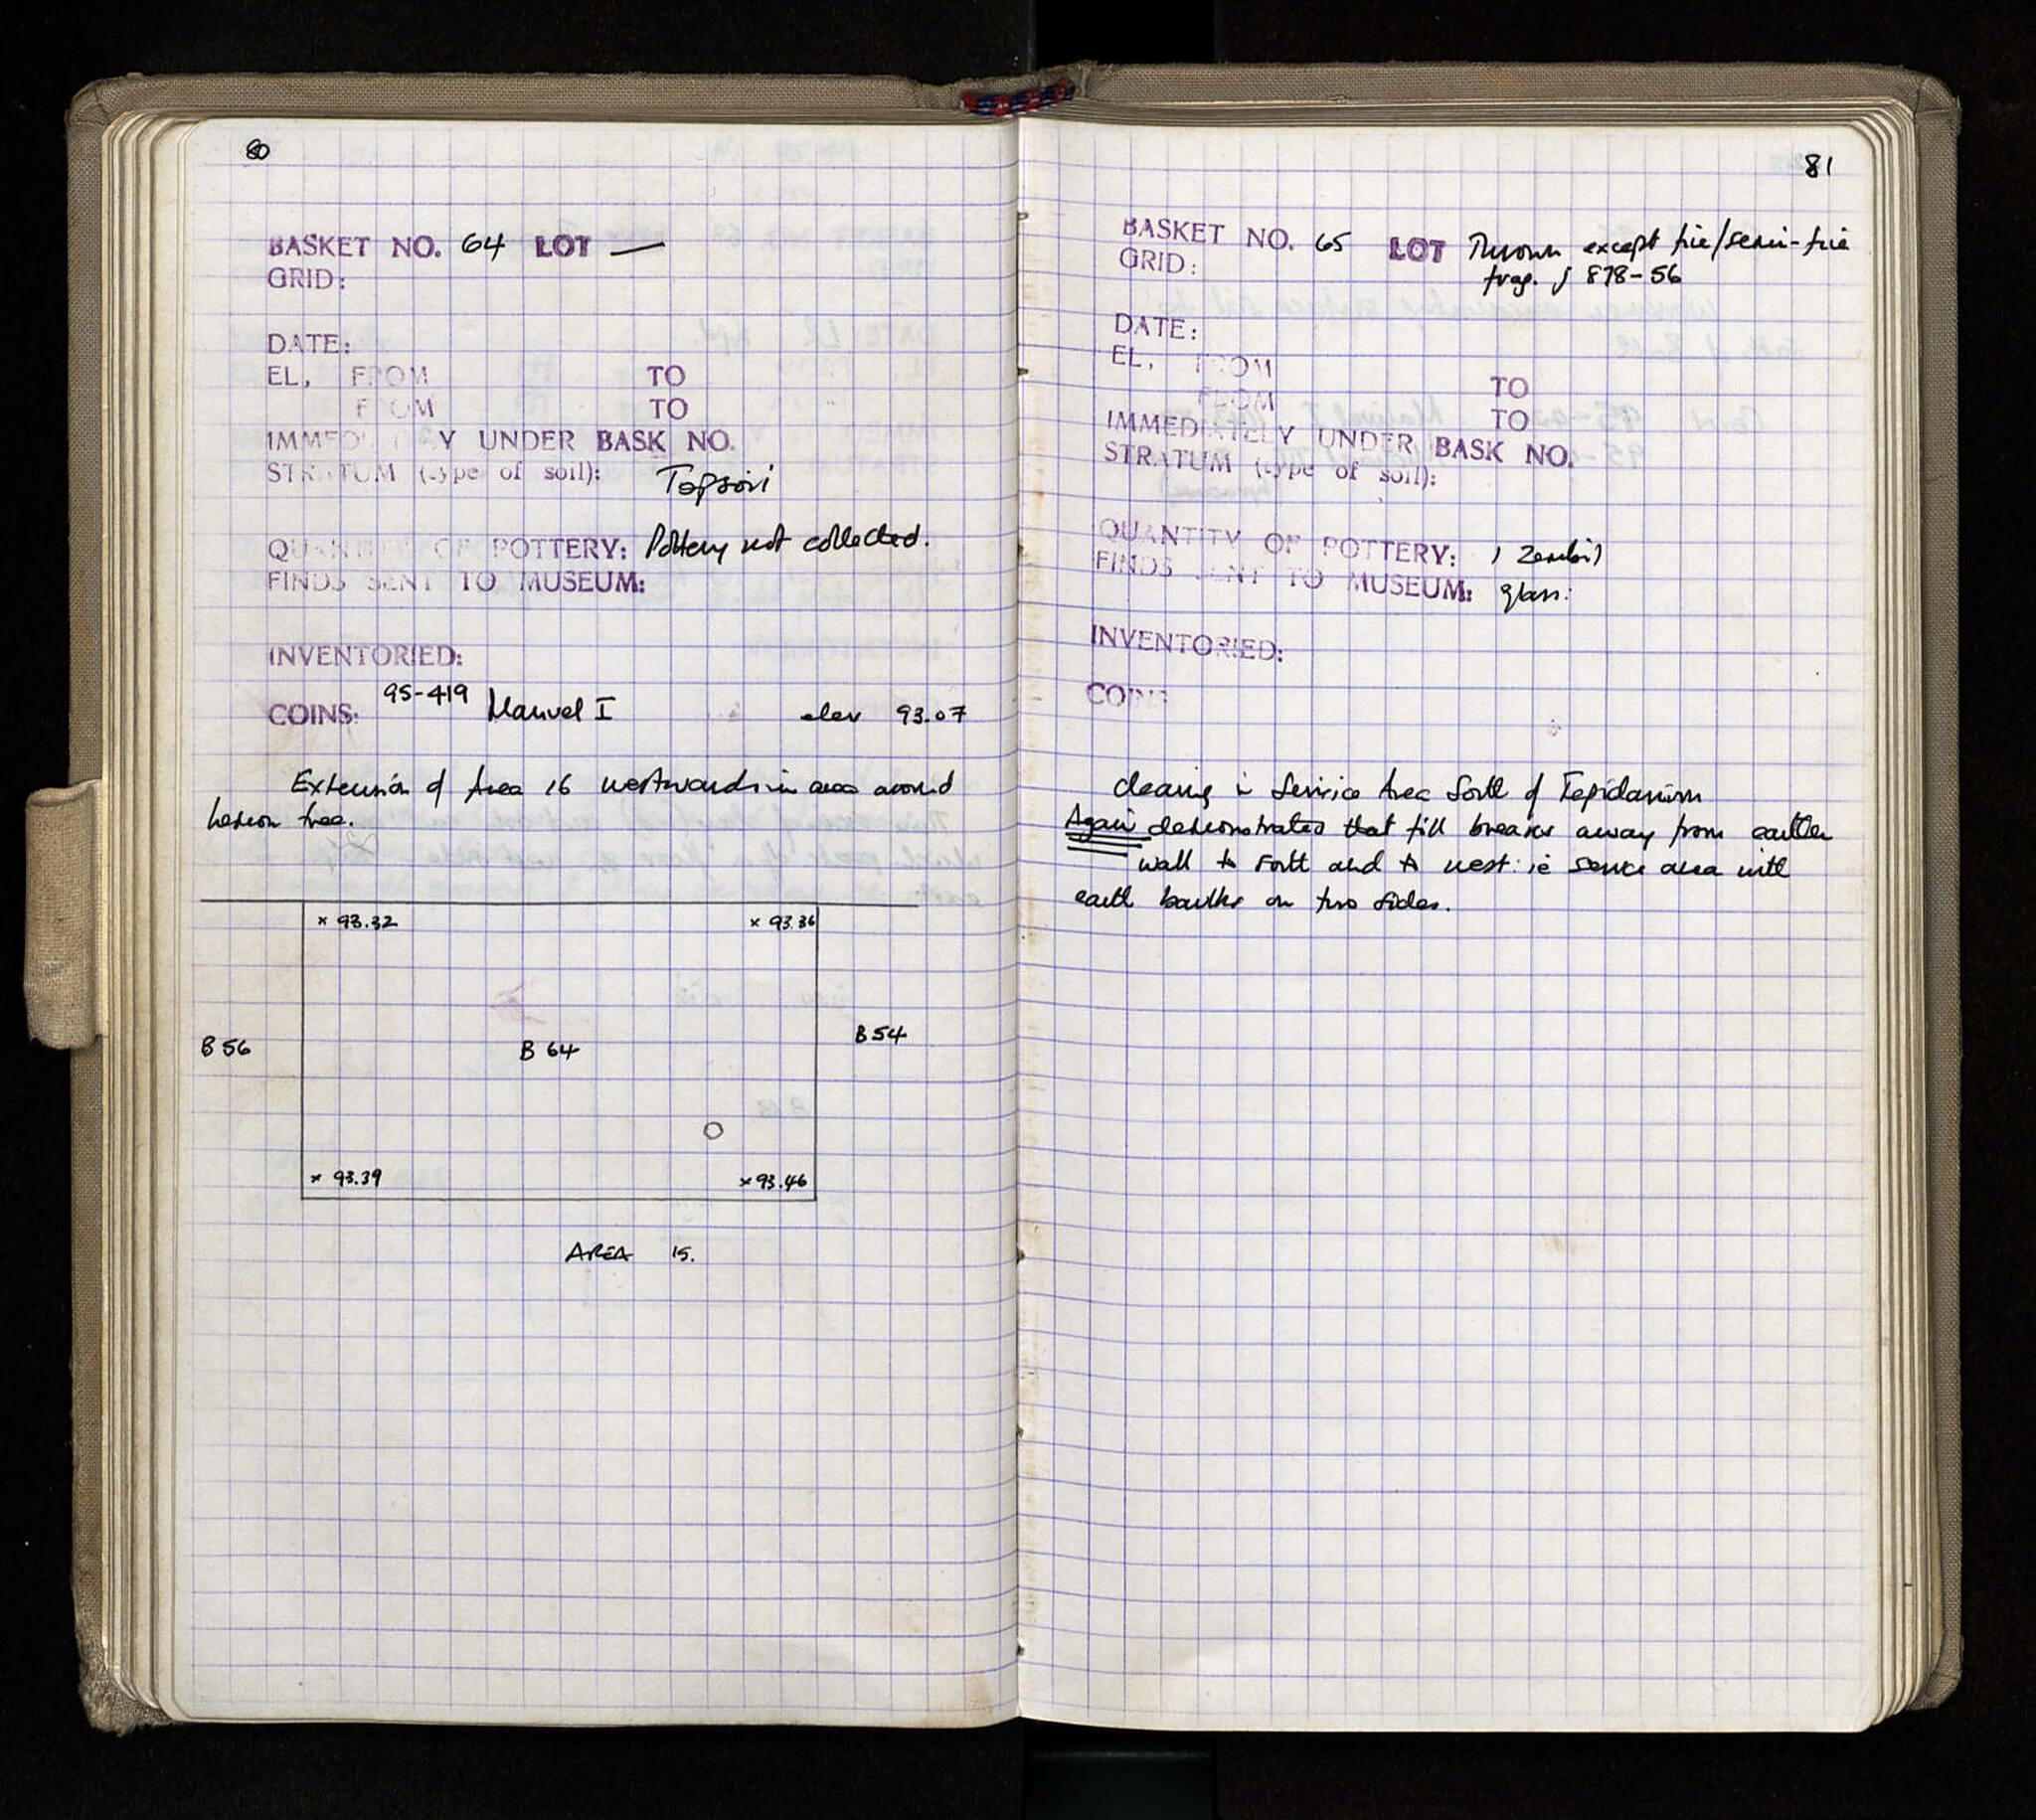 80
BASKET NO. 64 LOT —
GRID:
DATE:
EL, FROM TO
FROM TO
IMMEDIATELY UNDER BASK NO.
STRATUM (type of soil): Topsoil
QUANTITY OF POTTERY: Pottery not collected.
FINDS SENT TO MUSEUM:
INVENTORIED:
COINS: 95-419 Manuel I elev 93.07
Extension of Area 16 westwards in area around
lemon tree.
x 93.32 x 93.36
B 56 B 64 B 54
x 93.39 x 93.46
AREA 15.
81
BASKET NO. 65 LOT Thrown except fie/semi-fie
GRID: frag. J 878-56
DATE:
EL, FROM TO
FROM TO
IMMEDIATELY UNDER BASK NO.
STRATUM (type of soil):
QUANTITY OF POTTERY: 1 Zembil
FINDS SENT TO MUSEUM: glass.
INVENTORIED:
COINS
cleaning in Service Area South of Tepidarium
Again demonstrates that fill breaks away from earthen
wall to south and to west: ie service area with
earth baulks on two sides.